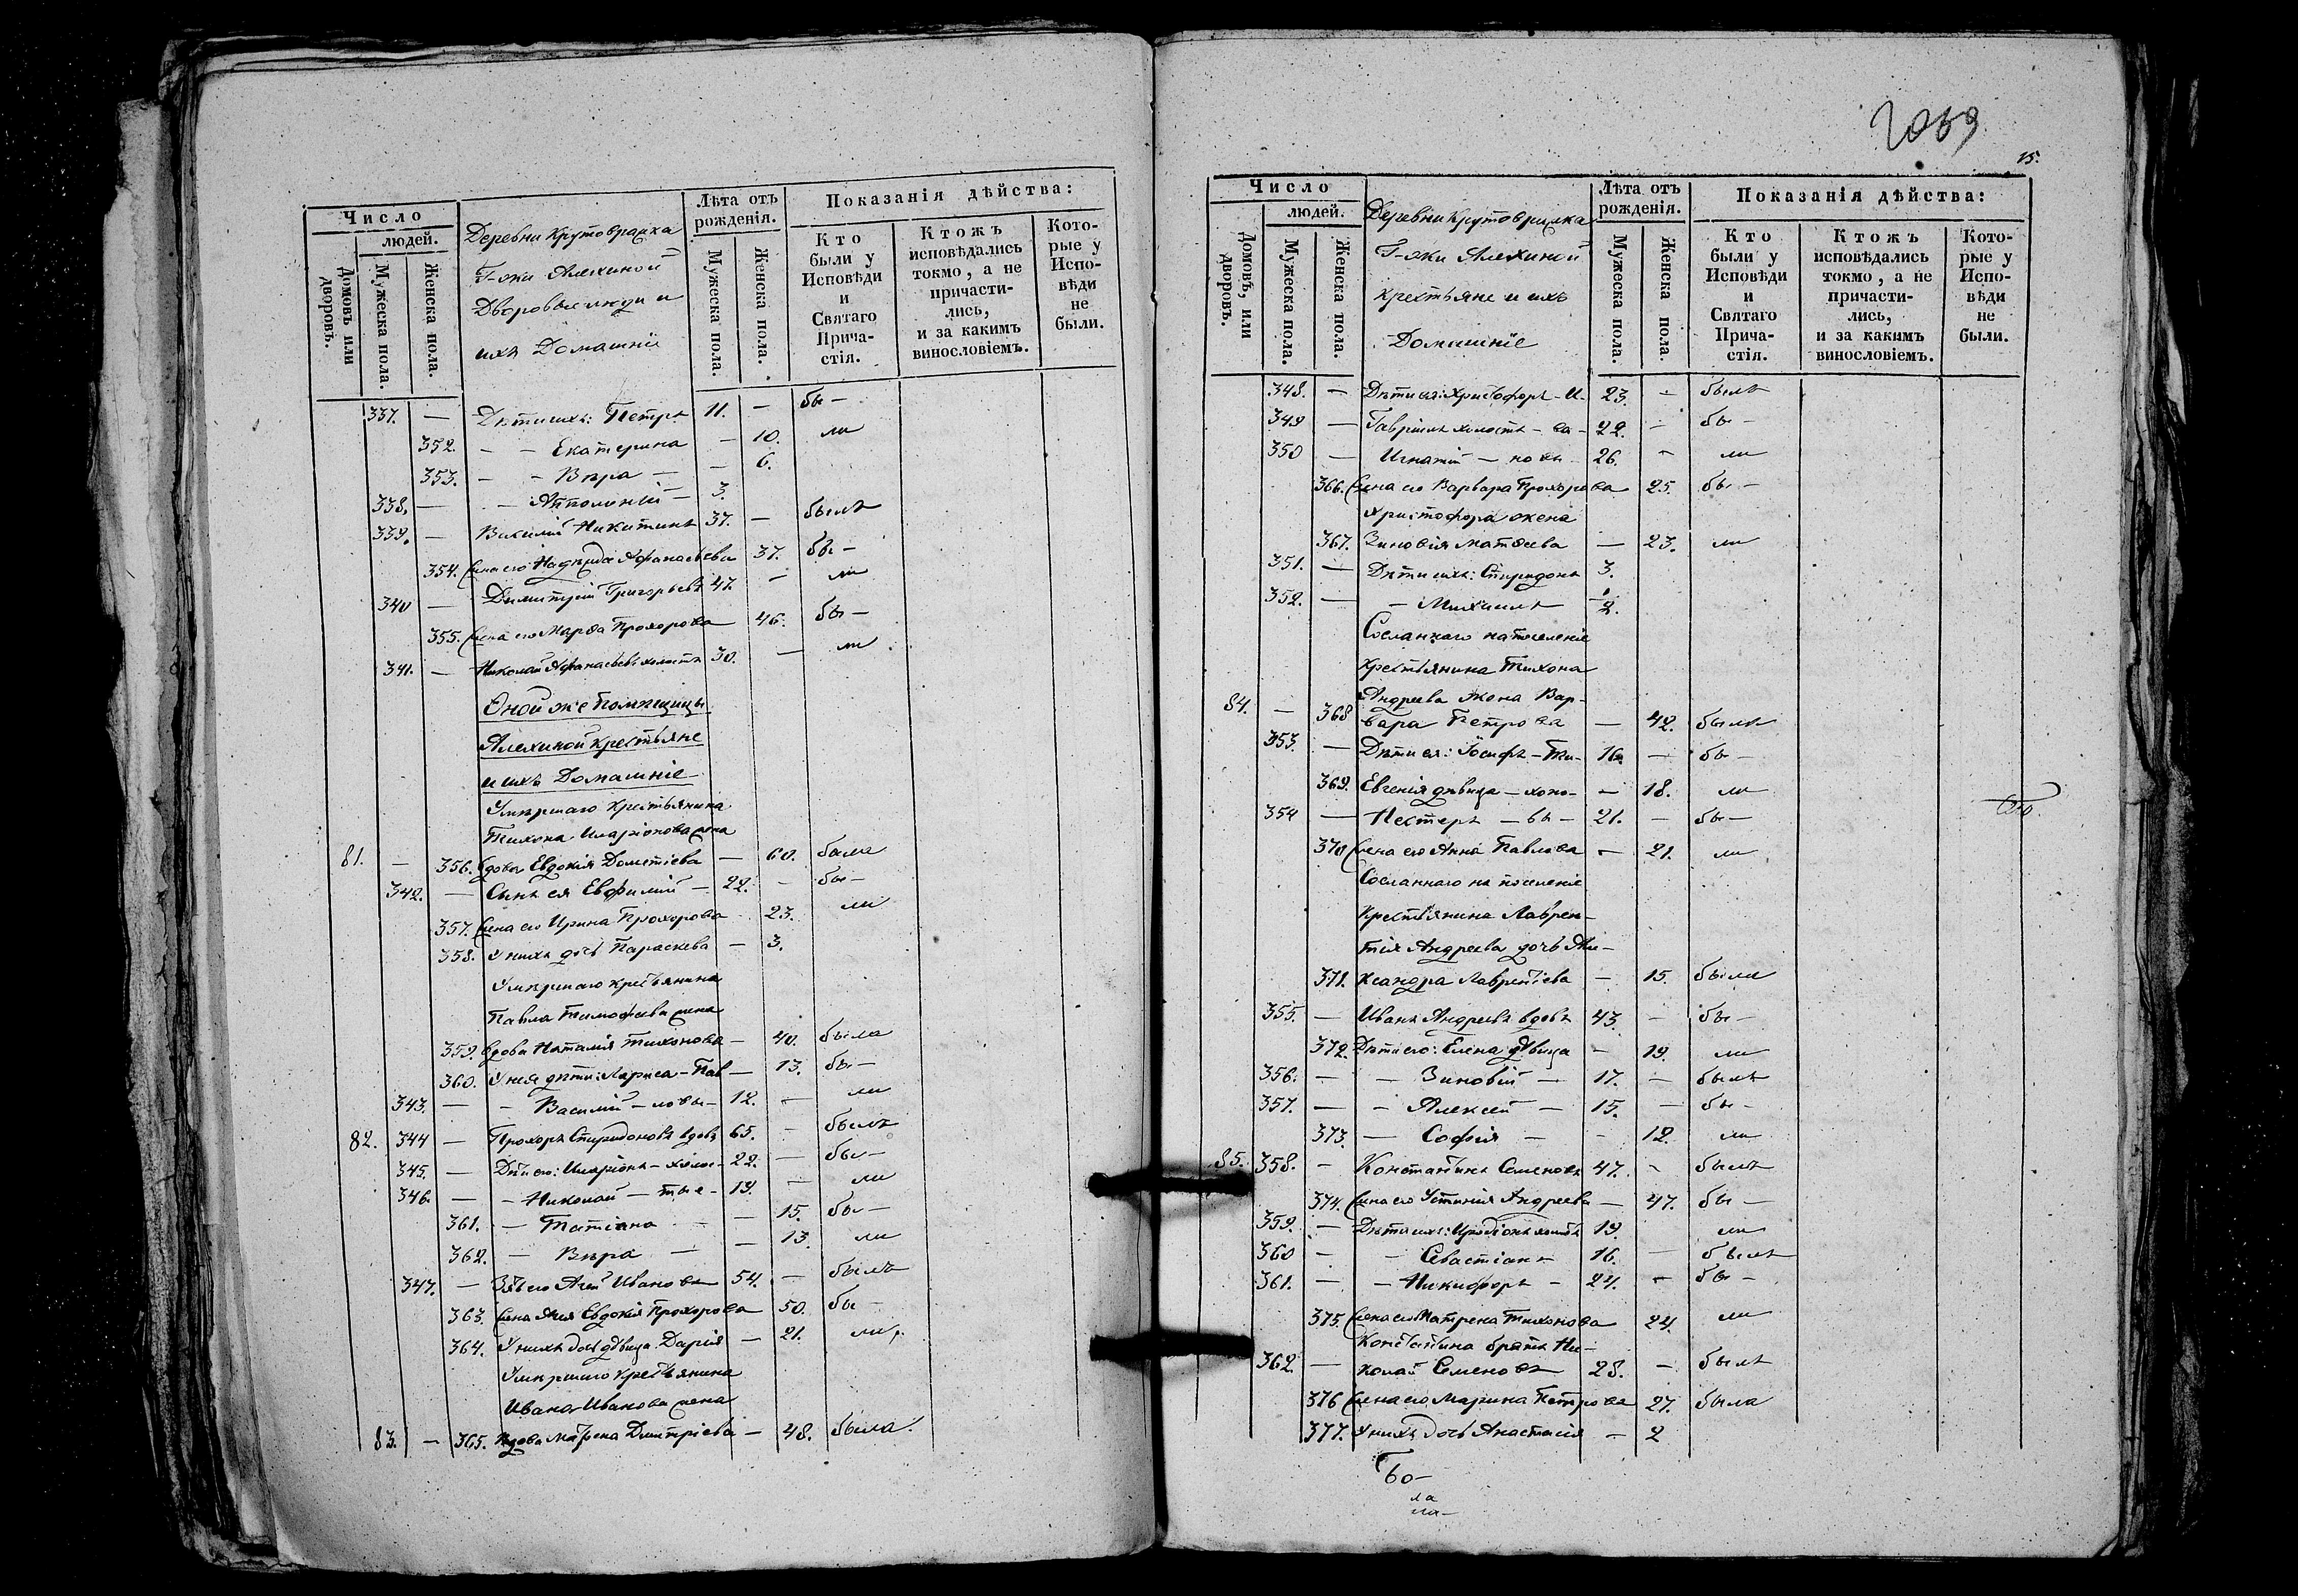 Число
людей.
Домовъ или дворовъ.
Мужеска пола.
Женска пола.
Деревни Крутовражка
Г-жи Алехиной
Дворовые люди и
ихъ Домашніе
Лѣта отъ рожденія.
Мужеска пола.
Женска пола.
Показанія дѣйства:
Кто были у Исповѣди и Святаго Причастія.
Ктожъ исповѣдались токмо, а не причастились, и за какимъ винословіемъ.
Которые у Исповѣди не были.
337. — Дѣти ихъ: Петръ 11. — бы —
352. — — Екатерина — 10. ли
353. — — Вѣра — — 6.
338. — — Апполиній — 3.
339. — Василій Никитинъ 37. — былъ
354. Жена его Надежда Афанасьева 37. бы —
340 — Димитрій Григорьевъ 47. — ли
355. Жена его Марѳа Прохорова 46. бы —
341. — Николай Афанасьевъ холостъ 30. — ли
Оной же Помѣщицы
Алехиной крестьяне
и ихъ Домашніе
Умершаго крестьянина
Тихона Иларіонова жена
81. — 356. вдова Евдокія Дометіева — 60. была
342. — Сынъ ея Евфимій — 22. — бы —
357. Жена его Ирина Прохорова 23. ли
358. У нихъ дочь Параскева — 3.
Умершаго крестьянина
Павла Тимофеева жена
359. вдова Наталія Тихонова — 40. была
360. У нея дѣти: Лариса — Пав — 13. бы —
343. — — Василій — ловы — 12. — ли
82. 344 — Прохоръ Спиридоновъ вдовъ 65. — былъ
345. — Дѣти его: Иларіонъ — холос — 22. — бы —
346. — — Николай — тые — 19. — ли
361. — Татіана — — 15. бы —
362. — Вѣра — — 13. ли
347. — Зять его Агей Ивановъ 54. — былъ
363. Жена Агея Евдокія Прохорова 50. бы —
364. У нихъ дочь дѣвица Дарія — 21. ли.
Умершаго крестьянина
Ивана Иванова жена
83. — 365. вдова Матрена Димитріева — 48. была.
15.
Число
людей.
Домовъ, или дворовъ.
Мужеска пола.
Женска пола.
Деревни Крутовражка
Г-жи Алехиной
крестьяне и ихъ
Домашніе
Лѣта отъ рожденія.
Мужеска пола.
Женска пола.
Показанія дѣйства:
Кто были у Исповѣди и Святаго Причастія.
Ктожъ исповѣдались токмо, а не причастились, и за какимъ винословіемъ.
Которые у Исповѣди не были.
348. — Дѣти ея: Христофоръ — И — 23. — былъ
349 — Гавріилъ холостъ — ва — 22. — бы —
350 — Игнатій — новы 26. — ли
366. Жена его Варвара Прохорова 25. бы —
Христофора жена
367. Зиновія Матѳеева — 23. ли
351. — Дѣти ихъ: Спиридонъ 3.
352. — — Михаилъ 2.
Сосланнаго на поселеніе
крестьянина Тихона
Андреева жена Вар-
84. — 368 вара Петрова — 42. была
353. — Дѣти ея: Іосифъ — Ти — 16. — бы —
369. Евгенія дѣвица — хоно — — 18. ли
354 — Нестеръ — вы — 21. — бы —
370 Жена его Анна Павлова — 21. ли
Сосланнаго на поселеніе
Крестьянина Лаврен-
тія Андреева дочь Але-
371. ксандра Лаврентіева — 15. была
355. — Иванъ Андреевъ вдовъ 43. — бы —
372. Дѣти его: Елена дѣвица — 19. ли
356. — — Зиновій — 17. — былъ
357. — — Алексей — 15. — бы —
373. — Софія — — 12. ли
85. 358. — Константинъ Семеновъ 47. — былъ
374. Жена его Устинія Андреева — 47. бы —
359. — Дѣти ихъ: Иродіонъ холостъ 19. ли
360 — — Севастіанъ 16. — былъ
361. — — Никифоръ — 24. — бы —
375. Жена его Матрена Тихонова 24. ли
Константина братъ Ни-
362. — колай Семеновъ 28. — былъ
376 Жена его Марина Петрова 27. была
377. У нихъ дочь Анастасія — 2